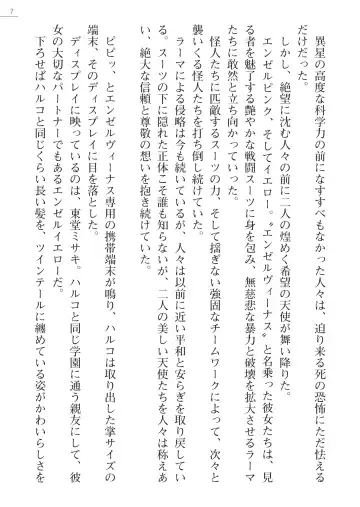 7
異星の高度な科学力の前になすすべもなかった人々は、迫り来る死の恐怖にただ怯える
だけだった。
しかし、絶望に沈む人々の前に二人の煌めく希望の天使が舞い降りた。
エンゼルピンク、そしてイエロー。〝エンゼルヴィーナス〟と名乗った彼女たちは、見
る者を魅了する艶やかな戦闘スーツに身を包み、無慈悲な暴力と破壊を拡大させるラーマ
たちに敢然と立ち向かっていった。
怪人たちに匹敵するスーツの力、そして揺ぎない強固なチームワークによって、次々と
襲いくる怪人たちを打倒し続けていた。
ラーマによる侵略は今も続いているが、人々は以前に近い平和と安らぎを取り戻してい
る。スーツの下に隠れた正体こそ誰も知らないが、二人の美しい天使たちを人々は称えあ
い、絶大な信頼と尊敬の想いを抱き続けていた。
ピピッ、とエンゼルヴィーナス専用の携帯端末が鳴り、ハルコは取り出した掌サイズの
端末、そのディスプレイに目を落とした。
ディスプレイに映っているのは、東堂ミサキ。ハルコと同じ学園に通う親友にして、彼
女の大切なパートナーでもあるエンゼルイエローだ。
下ろせばハルコと同じくらい長い髪を、ツインテールに纏めている姿がかわいらしさを